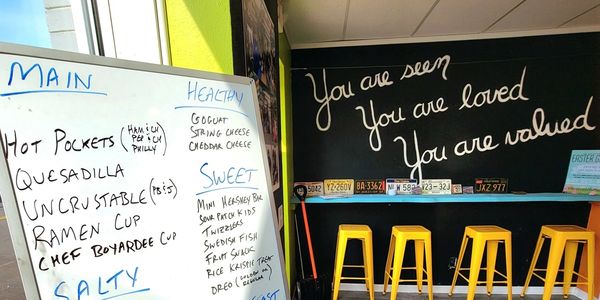 MAIN
HOT POCKETS (HAM & CH
PEP & CH
PHILLY)
QUESADILLA
UNCRUSTABLE (PB&J)
RAMEN CUP
CHEF BOYARDEE CUP
SALTY
HEALTHY
GOGURT
STRING CHEESE
CHEDDAR CHEESE
SWEET
MINI HERSHEY BAR
SOUR PATCH KIDS
TWIZZLERS
SWEDISH FISH
FRUIT SNACK
RICE KRISPIE TREAT
OREO (GOLDEN OR
REGULAR)
You are seen
You are loved
You are valued
EASTER